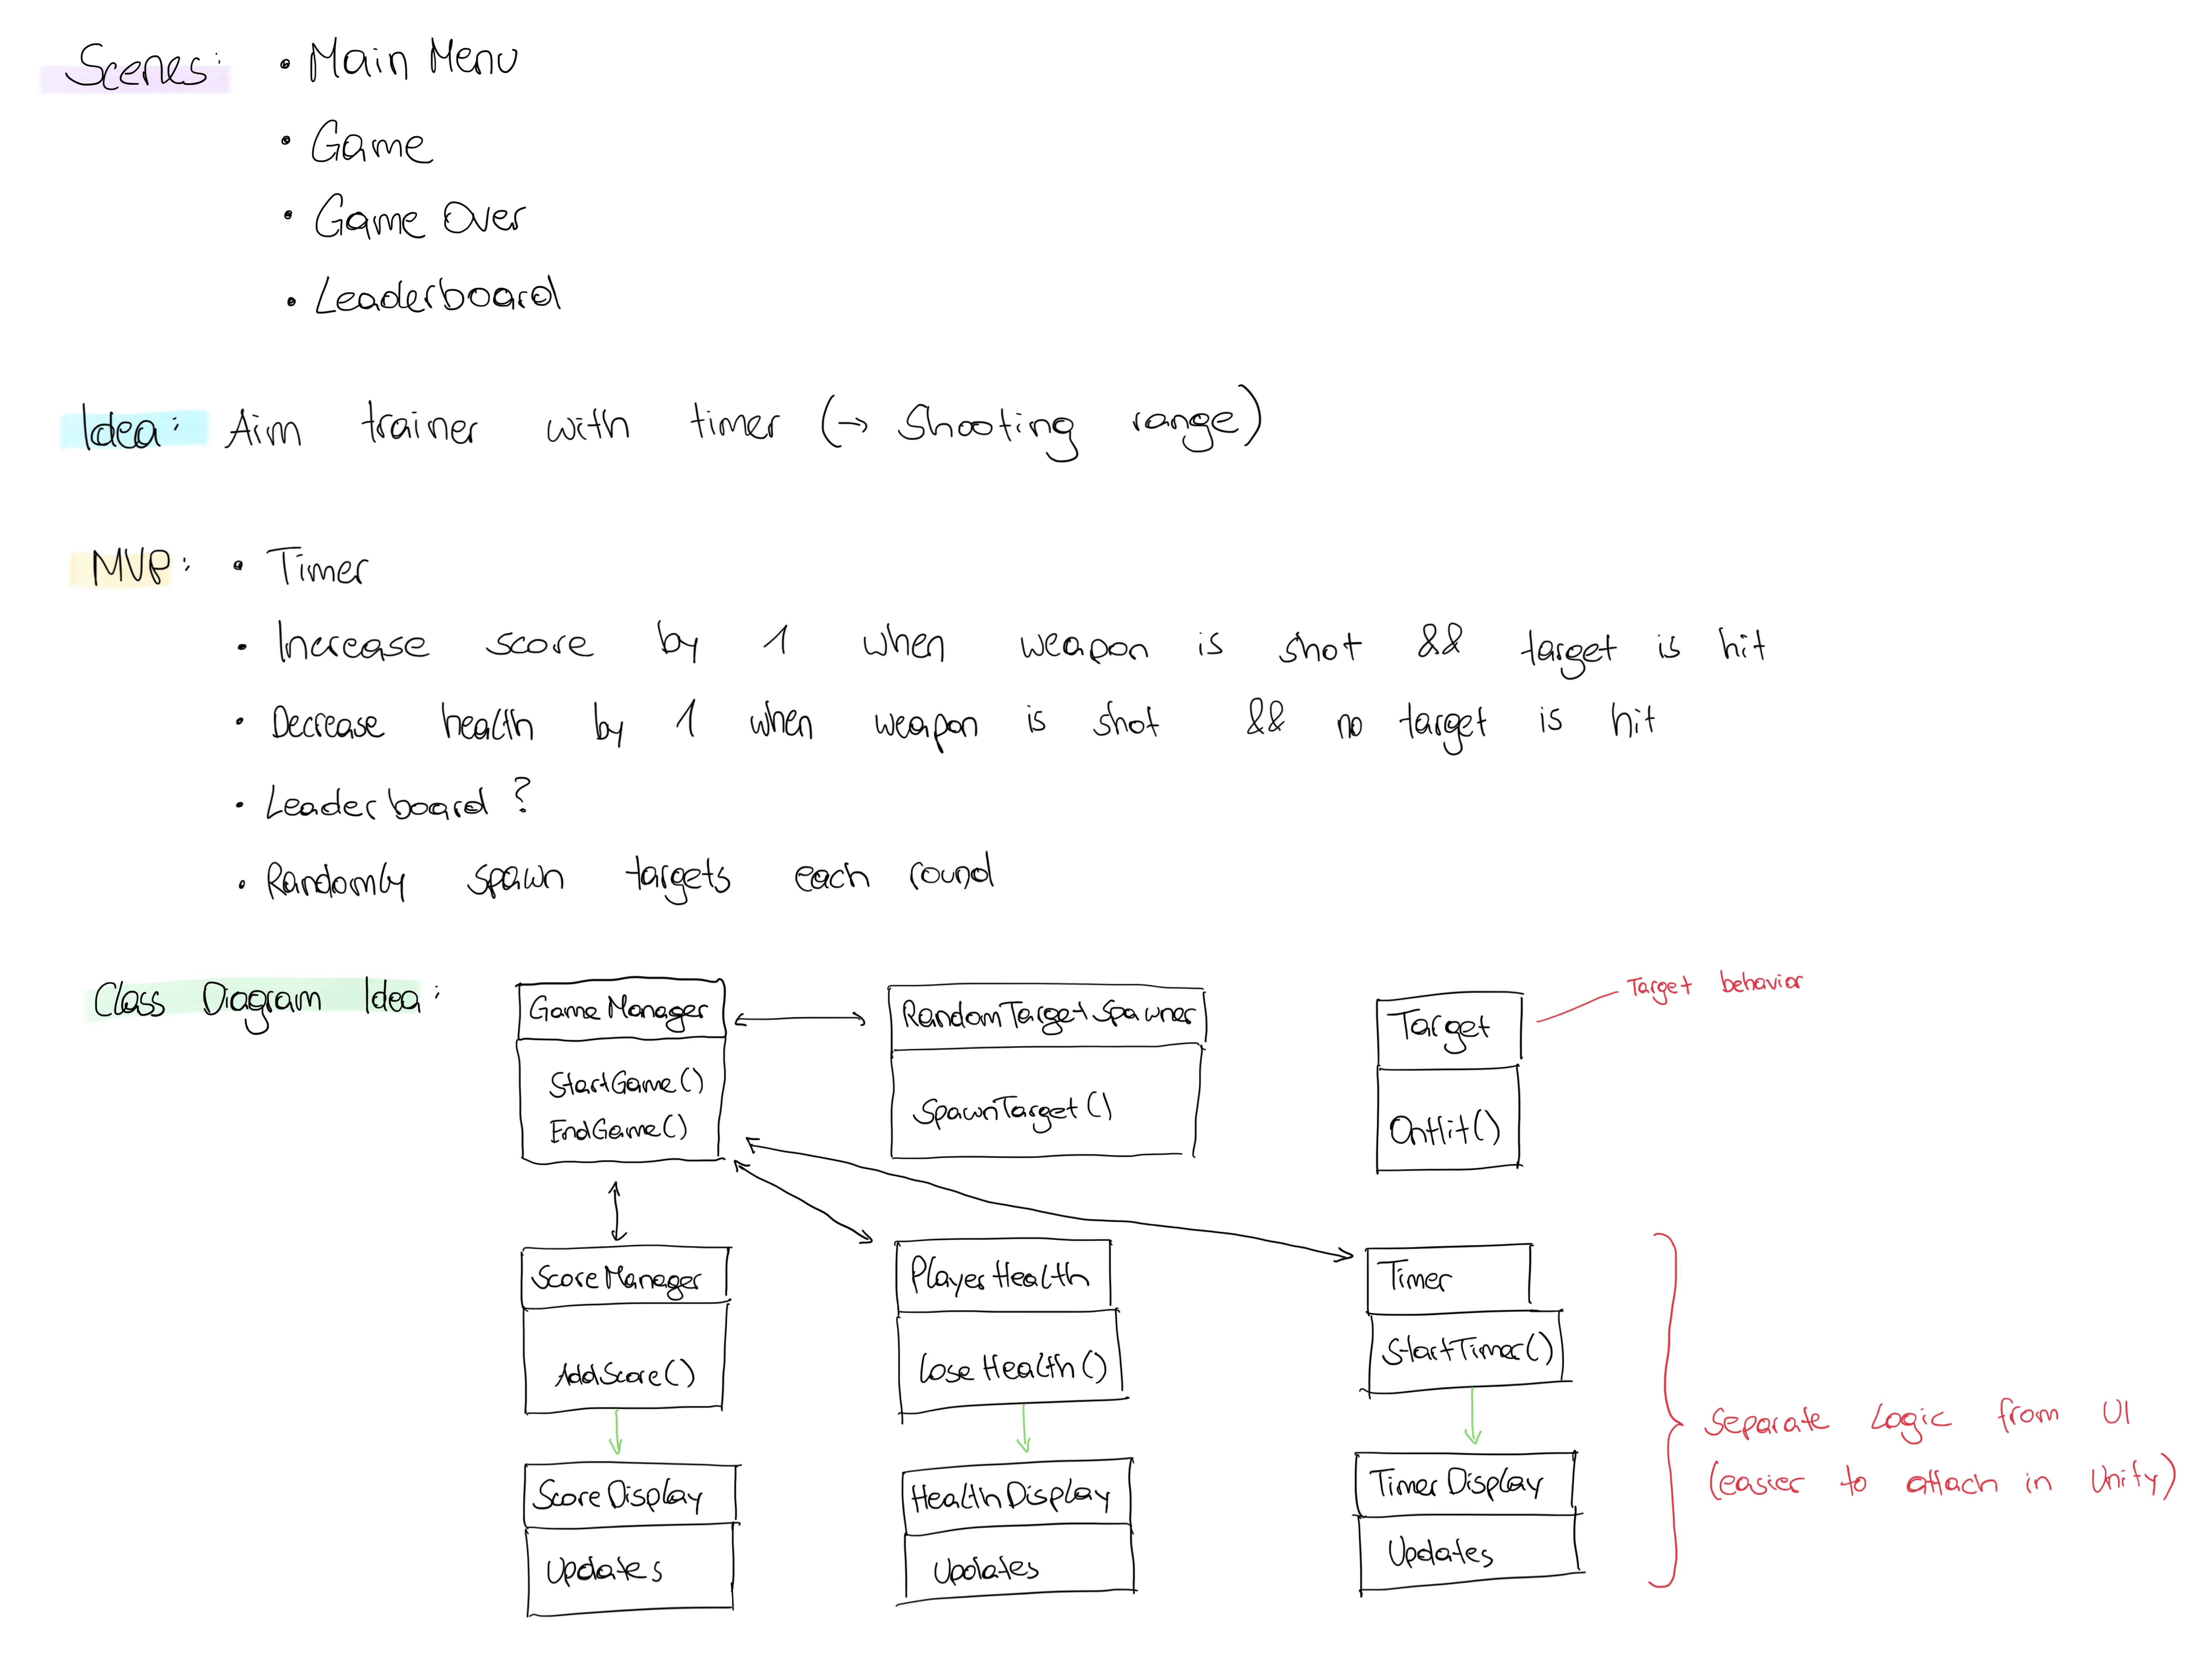 Scenes: • Main Menu
• Game
• Game Over
• Leaderboard
Idea: Aim trainer with timer (→ Shooting range)
MVP: • Timer
• Increase score by 1 when weapon is shot && target is hit
• Decrease health by 1 when weapon is shot && no target is hit
• Leaderboard?
• Randomly spawn targets each round
Class Diagram Idea:
GameManager
StartGame()
EndGame()
RandomTargetSpawner
SpawnTarget()
Target
OnHit()
Target behavior
ScoreManager
AddScore()
PlayerHealth
LoseHealth()
Timer
StartTimer()
ScoreDisplay
Updates
HealthDisplay
Updates
TimerDisplay
Updates
Separate Logic from UI
(easier to attach in Unity)